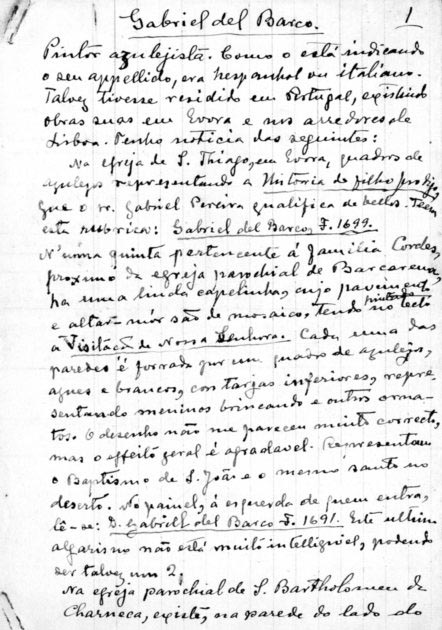 Gabriel del Barco. 1
Pintor azulejista. Como o está indicando
o seu appellido, era hespanhol ou italiano.
Talvez tivesse residido em Portugal, existindo
obras suas em Evora e nos arredores de
Lisboa. Tenho noticia das seguintes:
Na egreja de S. Thiago, em Evora, quadros de
azulejos representando a Historia do filho prodigo,
que o sr. Gabriel Pereira qualifica de bellos. Teem
esta rubrica: Gabriel del Barco, F. 1699.
N'uma quinta pertencente á familia Cordes,
proximo da egreja parochial de Barcarena,
ha uma linda capelinha, cujo pavimento
e altar-mór são de mosaico, tendo pintado no tecto
a Visitação de Nossa Senhora. Cada uma das
paredes é forrada por um quadro de azulejos,
azues e brancos, com tarjas inferiores, repre
sentando meninos brincando e outros orna-
tos. O desenho não me pareceu muito correcto,
mas o effeito geral é agradavel. Representam
o Baptismo de S. João e o mesmo santo no
deserto. No painel, á esquerda de quem entra,
lê-se: D. Gabriell del Barco F. 1691. Este ultimo
algarismo não está muito intelligivel, podendo
ser talvez um 2.
Na egreja parochial de S. Bartholomeu da
Charneca, existe, na parede do lado do